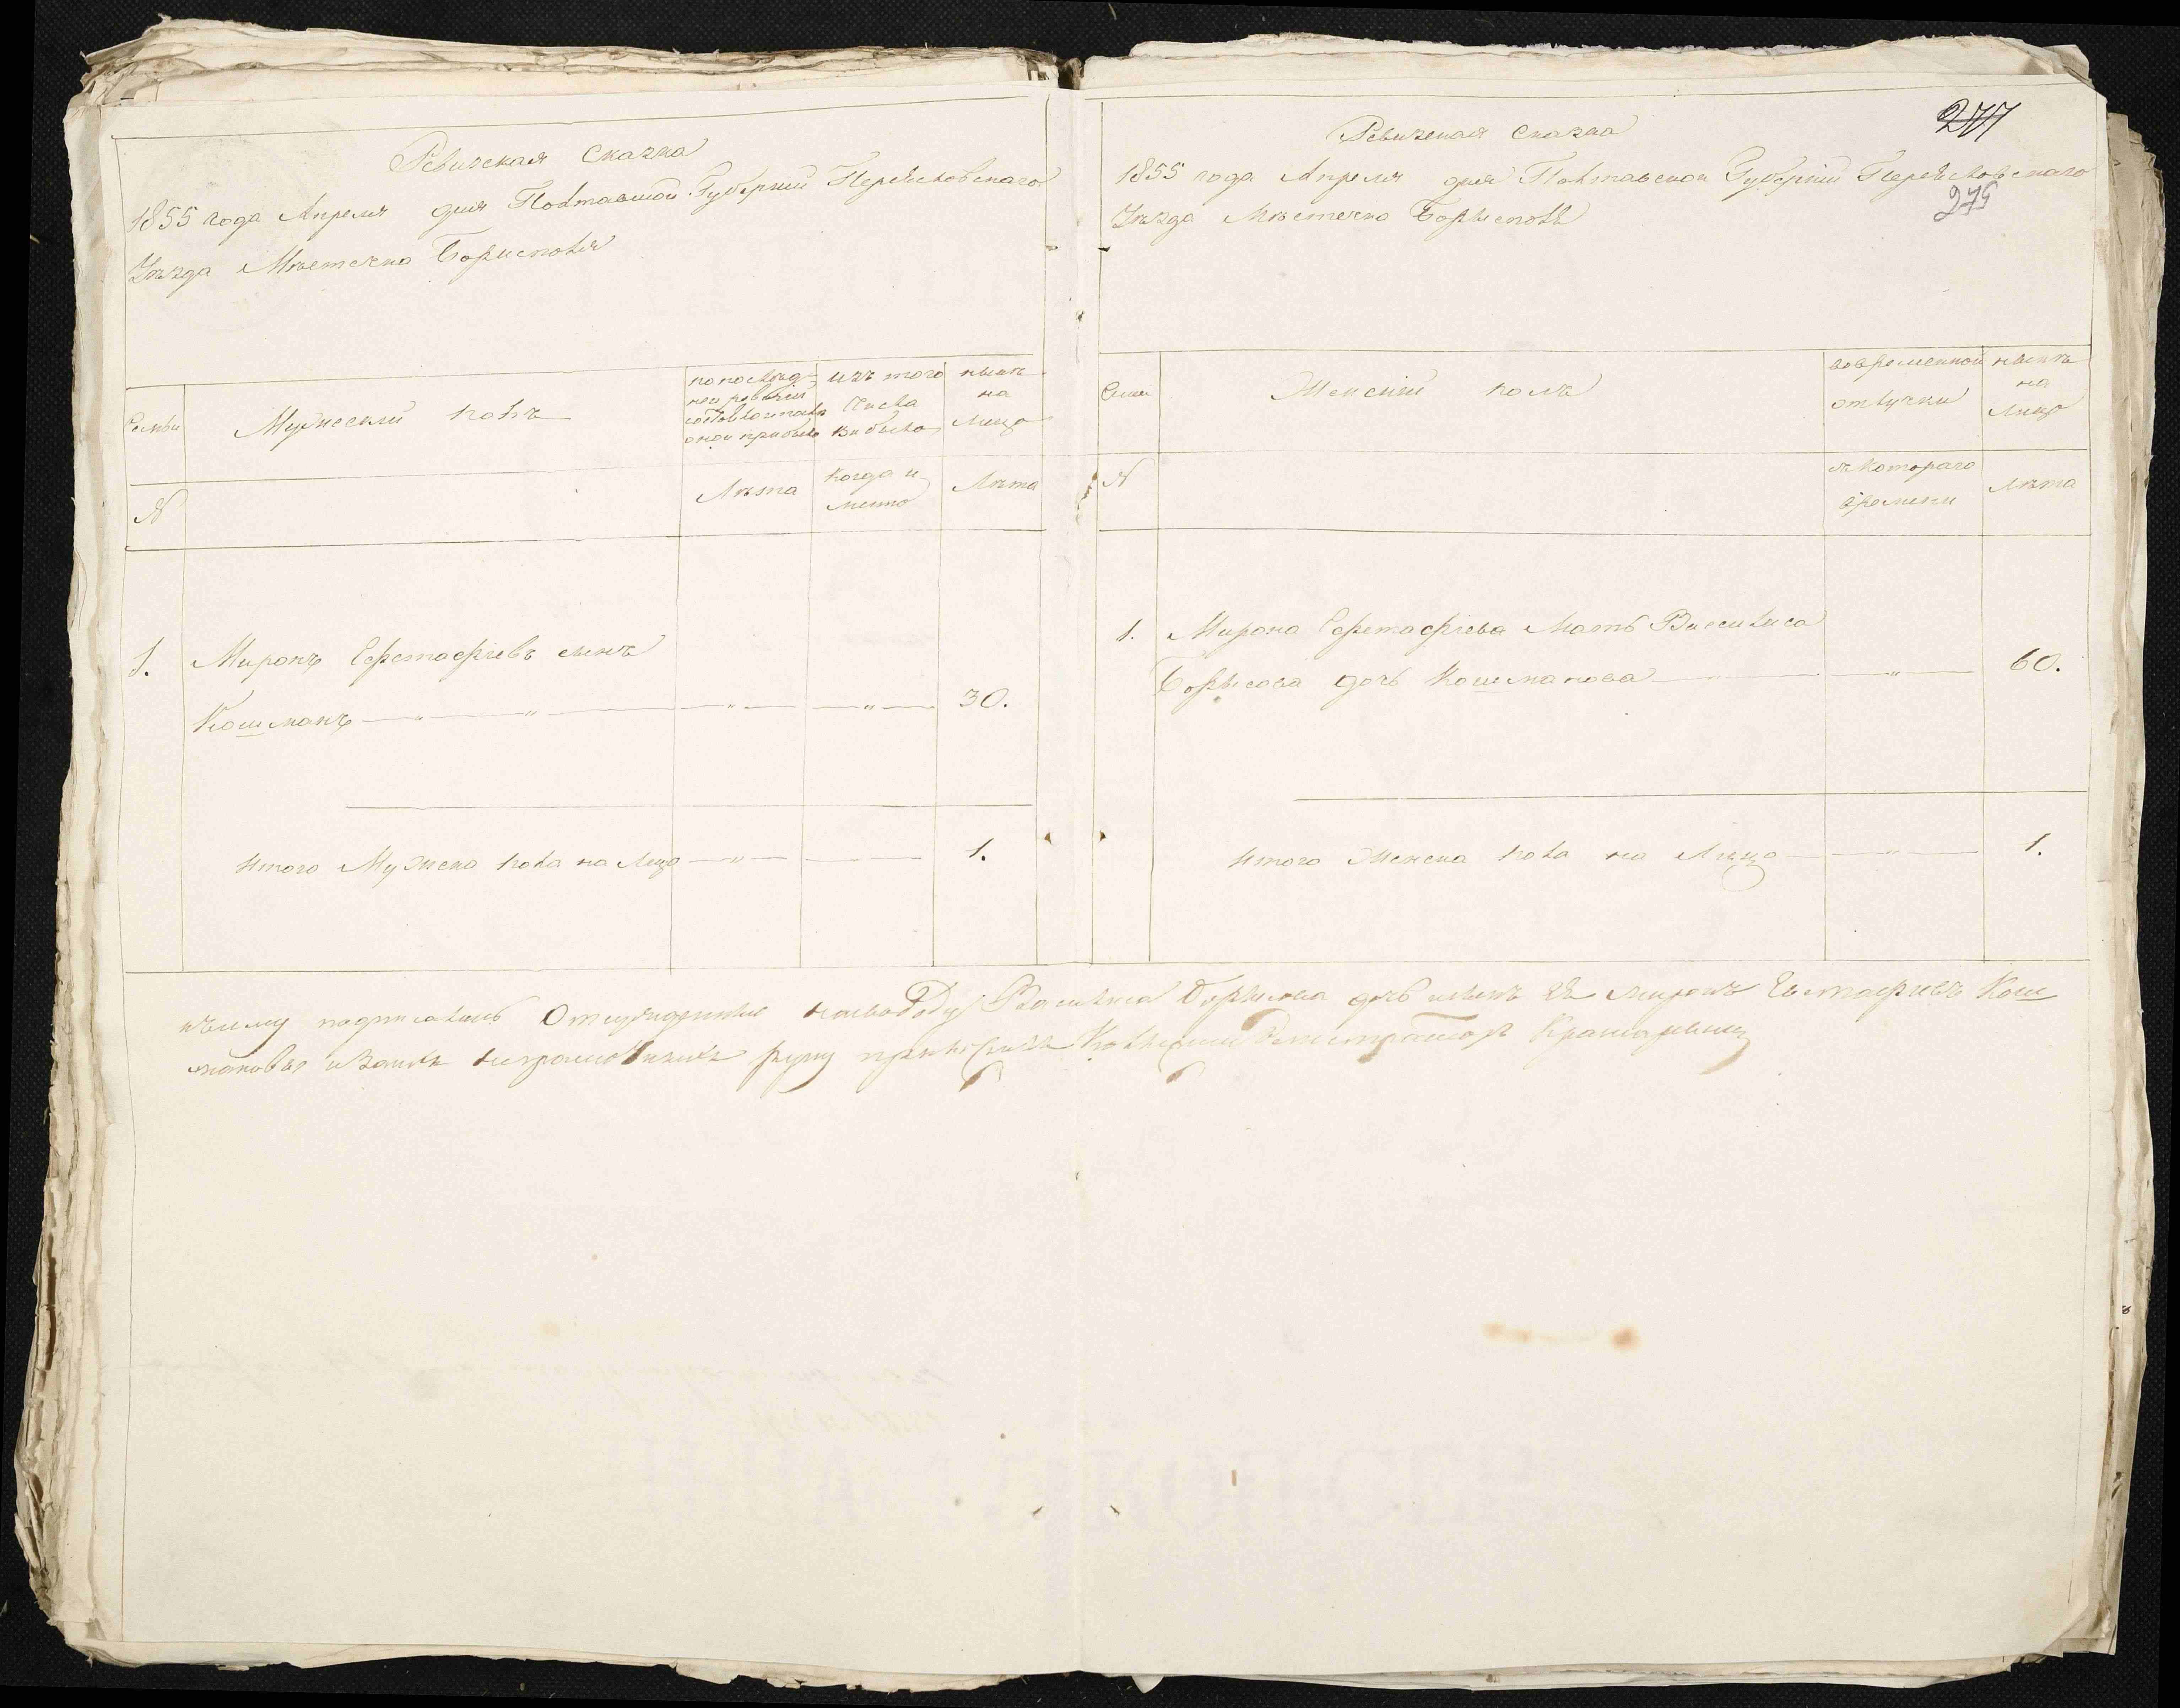 Ревижская Сказка
1855 года Апреля дня Полтавской Губерніи Переясловскаго
Уѣзда Мѣстечка Борисполя
Семьи
Мужескій полъ
по послѣд-
ней ревизіи
состояло и после
оной прибыло
изъ того
Числа
выбыло
нынѣ
на
Лицо
№
Лѣта
Когда и
Лѣта
1.
Миронъ Ефстафіевъ сынъ
Кошманъ — „ — „ — — „ — — „ — 30.
Итого Мужеска пола на Лицо — „ — — 1.
277
Ревижская Сказка
1855 года Апреля дня Полтавской Губерніи Переясловскаго
275
Уѣзда Мѣстечка Борысполя
Семьи
Женскій полъ
вовременной
отлучки
нынѣ
на
Лицо
№
съ котораго
времени
Лѣта
1. Мирона Ефстафіева Мать Василиса
Борысова дочь Кошманова — „ — — „ — 60.
Итого Женска пола на Лицо — „ — 1.
подписались Василиса Борисова дочь сынъ Ея Миронъ Евстафіевъ Кош
мановы руку Колежский Регистраторъ